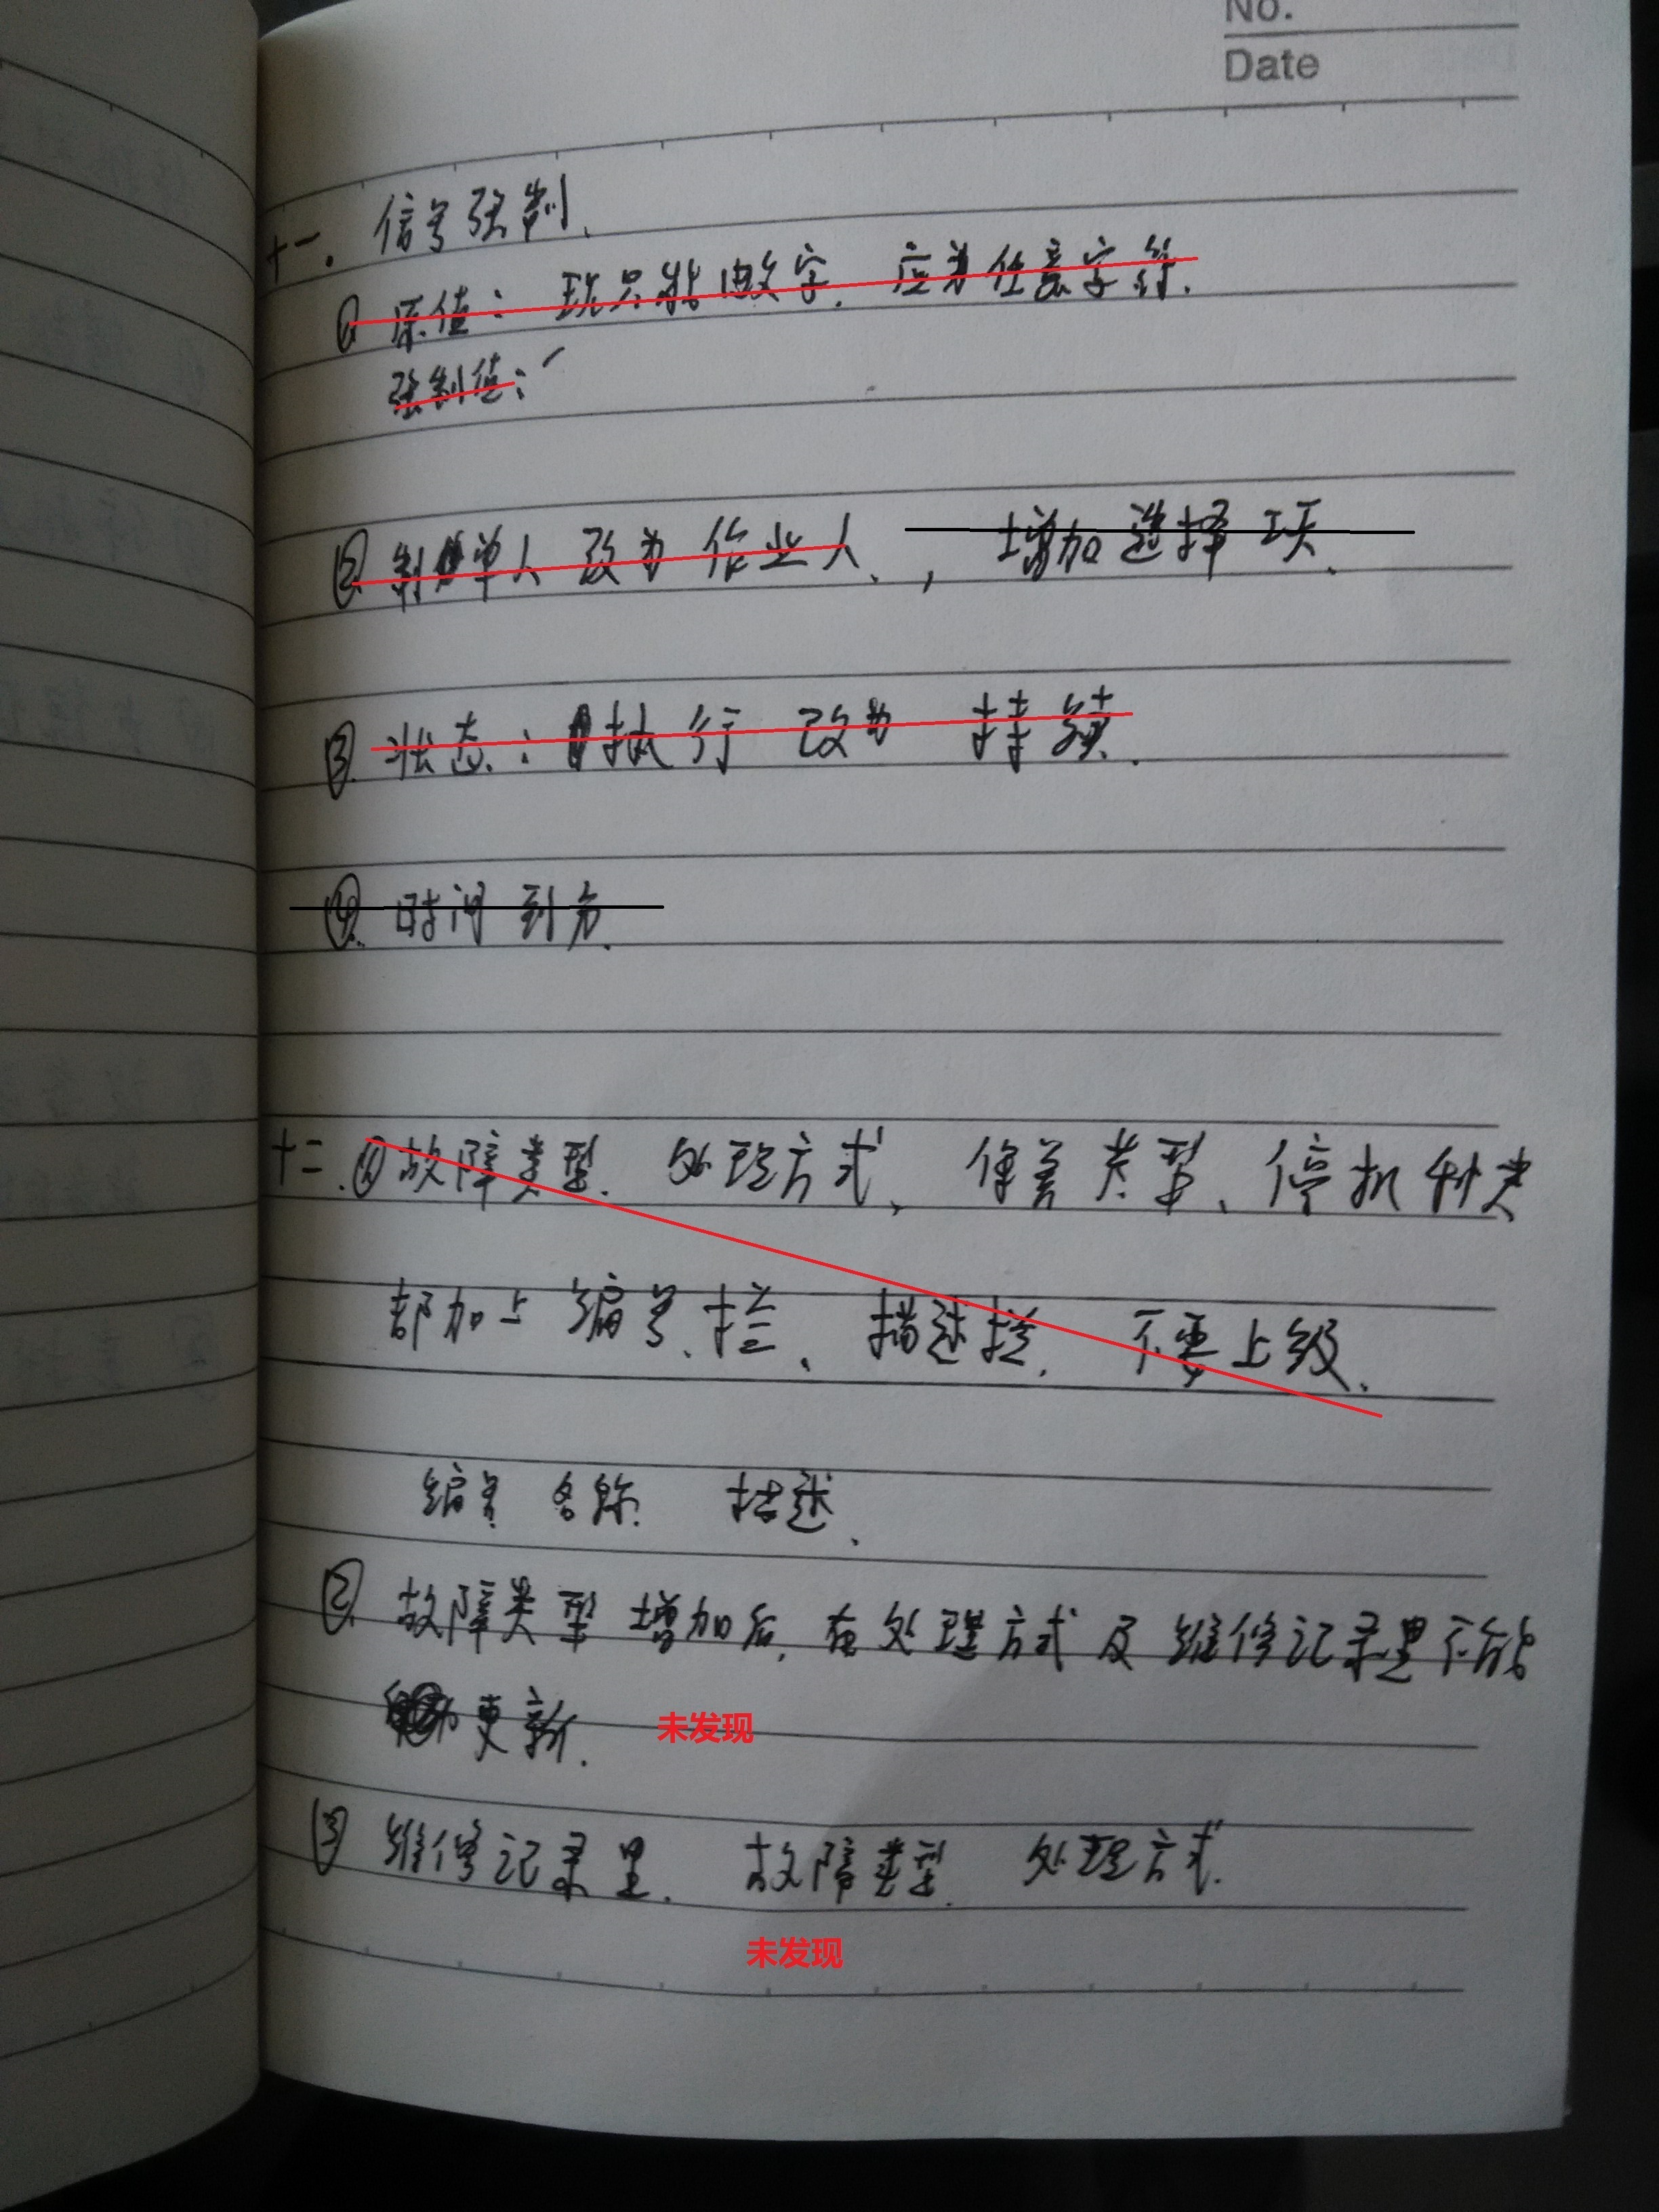 No.
Date
十一. 信号强制.
① 原值: 现只能数字. 应为任意字符.
强制值: 〃
② 制单人 改为 作业人., 增加选择项.
③ 状态: 执行 改为 持续.
④. 时间到分.
十二. ① 故障类型. 处理方式、 停机种类
都加上 编号.栏、 描述栏. 不要上级.
编号 名称. 描述.
② 故障类型 增加后, 在处理方式 及 维修记录里不能
更新. 未发现
③ 维修记录里. 故障类型. 处理方式.
未发现